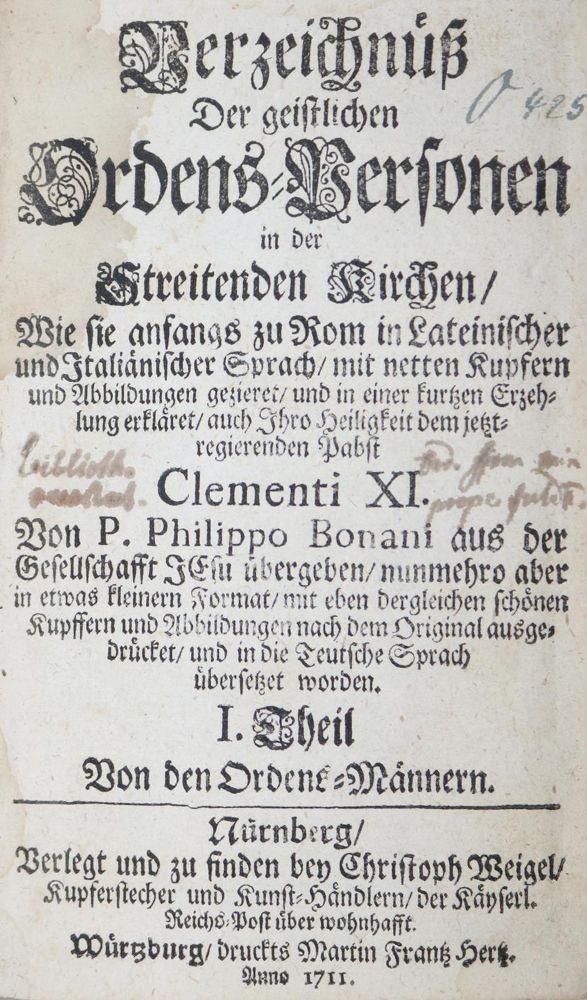 Verzeichnüß
O 425
Der geistlichen
Ordens-Personen
in der
Streitenden Kirchen/
Wie sie anfangs zu Rom in Lateinischer
und Italiänischer Sprach/ mit netten Kupfern
und Abbildungen gezieret/ und in einer kurtzen Erzeh-
lung erkläret/ auch Ihro Heiligkeit dem jetzt-
regierenden Pabst
biblioth.
Clementi XI.
Von P. Philippo Bonani aus der
Gesellschafft JEsu übergeben/ nunmehro aber
in etwas kleinern Format/ mit eben dergleichen schönen
Kupffern und Abbildungen nach dem Original ausge-
drücket/ und in die Teutsche Sprach
übersetzet worden.
I. Theil
Von den Ordens-Männern.
Nürnberg/
Verlegt und zu finden bey Christoph Weigel/
Kupferstecher und Kunst-Händlern/ der Käyserl.
Reichs-Post über wohnhafft.
Würtzburg/ druckts Martin Frantz Hertz.
Anno 1711.